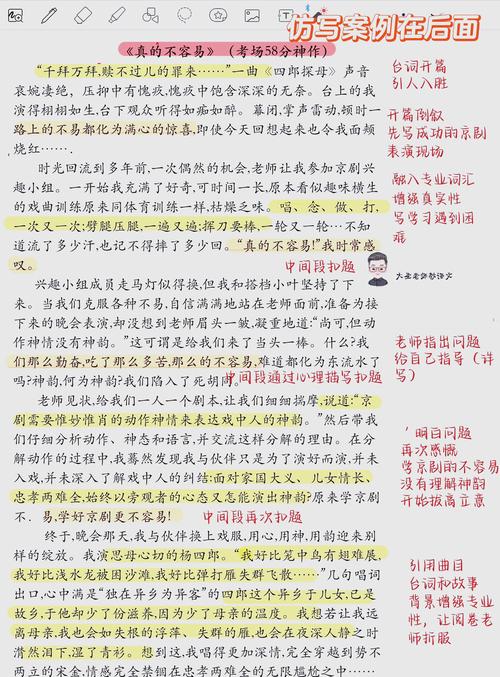 仿写案例在后面
《真的不容易》（考场58分神作）
“千拜万拜，赎不过儿的罪来……”一曲《四郎探母》声音
哀婉凄绝，压抑中有愧疚，愧疚中饱含深深的无奈。台上的我
演得栩栩如生，台下观众听得如痴如醉。幕闭，掌声雷动，顿时一
路上的不易都化为满心的惊喜，即使今天回想起来也令我面颊
烧红……
台词开篇
引人入胜
开篇倒叙
先写成功的京剧
表演现场
时光回流到多年前，一次偶然的机会，老师让我参加京剧兴
趣小组。一开始我充满了好奇，可时间一长，原本看似趣味横生
的戏曲训练原来同体育训练一样，枯燥乏味。唱、念、做、打，
一次又一次；劈腿压腿，一遍又一遍；挥刀耍棒，一轮又一轮…不知
道流了多少汗，也记不得摔了多少回。“真的不容易！”我时常感
叹。
融入专业词汇
增强真实性
写学习遇到困
难
中间段扣题
大圣老师教语文
兴趣小组成员走马灯似得换，但我和搭档小叶坚持了下
来。当我们克服各种不易，自信满满地站在老师面前，准备为接
下来的晚会表演，却没想到老师眉头一皱，凝重地道：“尚可，但动
作神情没有神韵。”这可谓是给我们来了当头一棒。什么？我
们那么勤奋，吃了那么多苦，那么的不容易，难道都化为东流水了
吗？神韵，何为神韵？我们陷入了死胡同。
中间段通过心理描写扣题
老师指出问题
给自己指导（详
写）
老师见状，给我们一人一个剧本，让我们细细揣摩，说道：“京
剧需要惟妙惟肖的动作神情来表达戏中人的神韵。”然后带我
们仔细分析动作、神态和语言，并交流这样分解的理由。在分
解动作的过程中，我蓦然发现我与伙伴只是为了演好而演，并未
入戏，并未深入了解戏中人的纠结：面对家国大义、儿女情长、
忠孝两难全，始终以旁观者的心态又怎能演出神韵？原来学京剧
不．易，学好京剧更不容易！
中间段再次扣题
明白问题
再次感慨
学京剧的不容易
没有理解神韵
开始拔高立意
终于，晚会那天，我与伙伴换上戏服，用心，用神，用韵迎来别
样的绽放。我演思母心切的杨四郎。“我好比笼中鸟有翅难展，
我好比浅水龙被困沙滩，我好比弹打雁失群飞散……”几句唱词
出口，心中满是“独在异乡为异客”的四郎这个异乡于儿女，已是
故乡，于他却少了份滋养，因为少了母亲的温度。我想若让我远
离母亲，我也会如失根的浮萍、失群的雁，也会在夜深人静之时
潸然泪下，湿了青衫。想到这，我唱得更加深情，完全穿越到势不
两立的宋金，情感完全禁锢在忠孝两难全的无限尴尬之中……
引用曲目
台词和故事
背景增强专业
性，让阅卷老
师折服